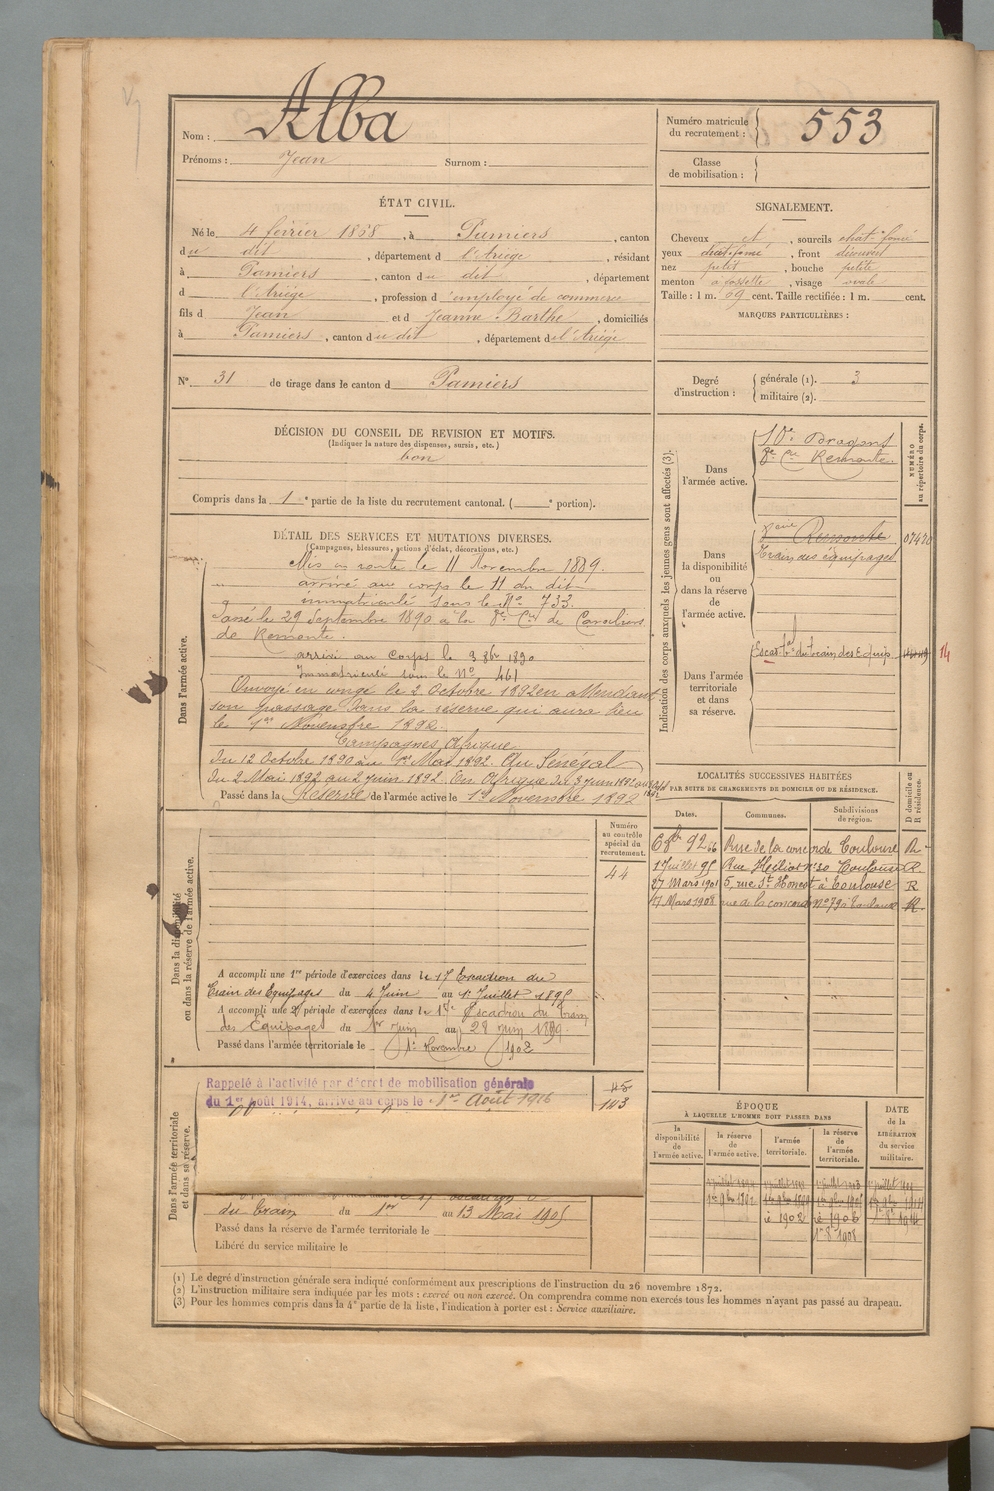 Nom : Alba
Prénoms : Jean Surnom :
Numéro matricule
du recrutement : 553
Classe
de mobilisation :
ÉTAT CIVIL.
Né le 4 février 1868, à Pamiers, canton
du dit, département d l'Ariège, résidant
à Pamiers, canton du dit, département
d l'Ariège, profession d'employé de commerce
fils d Jean et d Jeanne Barthe, domiciliés
à Pamiers, canton du dit, département de l'Ariège
SIGNALEMENT.
Cheveux et, sourcils chat-foncé
yeux chat-foncé, front découvert
nez petit, bouche petite
menton à fossette, visage ovale
Taille : 1 m. 69 cent. Taille rectifiée : 1 m. cent.
MARQUES PARTICULIÈRES :
N° 31 de tirage dans le canton d Pamiers
Degré
d'instruction :
générale (1). 3
militaire (2).
DÉCISION DU CONSEIL DE REVISION ET MOTIFS.
(Indiquer la nature des dispenses, sursis, etc.)
bon
Compris dans la 1e partie de la liste du recrutement cantonal. ( e portion).
DÉTAIL DES SERVICES ET MUTATIONS DIVERSES.
(Campagnes, blessures, actions d'éclat, décorations, etc.)
Dans l'armée active.
Mis en route le 11 Novembre 1889.
arrivé au corps le 11 du dit
immatriculé sous le N° 733.
Passé le 29 Septembre 1890 à la 8e Cie de Cavaliers
de Remonte.
arrivé au corps le 3 8bre 1890
Immatriculé sous le N° 461
Envoyé en congé le 2 Octobre 1892 en attendant
son passage dans la réserve qui aura lieu
le 1er Novembre 1892.
Campagnes, Afrique
du 12 Octobre 1890 au 1er Mai 1892. Au Sénégal
du 2 Mai 1892 au 2 juin 1892. En Afrique du 3 juin 1892 au
Passé dans la Réserve de l'armée active le 1er Novembre 1892
Indication des corps auxquels les jeunes gens sont affectés (3).
NUMÉRO
au répertoire du corps.
Dans
l'armée active.
10e Dragons
8e Cie Remonte.
Dans
la disponibilité
ou
dans la réserve
de
l'armée active.
8ème Remonte
Train des équipages
Dans l'armée
territoriale
et dans
sa réserve.
Escad. tal du train des Equip.
14
LOCALITÉS SUCCESSIVES HABITÉES
PAR SUITE DE CHANGEMENTS DE DOMICILE OU DE RÉSIDENCE.
D domicile ou
R résidence.
Dates. Communes. Subdivisions
de région.
6 8bre 92 Rue de la concorde 66 Toulouse R
1 Juillet 95 Rue Héliot N° 20 Toulouse R.
27 Mars 1901 5, rue St Honest à Toulouse R
17 Mars 1908 rue de la concorde N° 79 à Toulouse R
Dans la disponibilité
ou dans la réserve de l'armée active.
Numéro
au contrôle
spécial du
recrutement.
44
A accompli une 1re période d'exercices dans le 17 Escadron du
Train des Equipages du 4 Juin au 1er Juillet 1895
A accompli une 2e période d'exercices dans le 18e Escadron du train
des Equipages du 1er Juin au 28 juin 1899.
Passé dans l'armée territoriale le 1er Novembre 1902
Dans l'armée territoriale
et dans sa réserve.
Rappelé à l'activité par décret de mobilisation générale
du 1er août 1914, arrivé au corps le 1er Août 1916
45
143
du Train du 1er au 13 Mai 1905
Passé dans la réserve de l'armée territoriale le
Libéré du service militaire le
ÉPOQUE
À LAQUELLE L'HOMME DOIT PASSER DANS
DATE
de la
LIBÉRATION
du service
militaire.
la
disponibilité
de
l'armée active.
la réserve
de
l'armée active.
l'armée
territoriale.
la réserve
de
l'armée
territoriale.
1er 9bre 1892
è 1902 è 1908
1er 8e 1908
(1) Le degré d'instruction générale sera indiqué conformément aux prescriptions de l'instruction du 26 novembre 1872.
(2) L'instruction militaire sera indiquée par les mots : exercé ou non exercé. On comprendra comme non exercés tous les hommes n'ayant pas passé au drapeau.
(3) Pour les hommes compris dans la 4e partie de la liste, l'indication à porter est : Service auxiliaire.